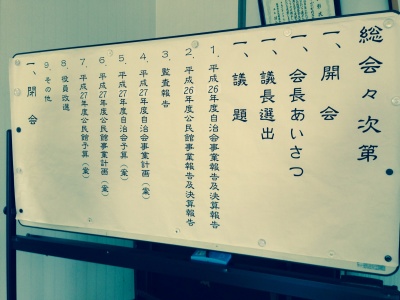 総会々次第
一、開会
一、会長あいさつ
一、議長選出
一、議題
1．平成26年度自治会事業報告及決算報告
2．平成26年度公民館事業報告及決算報告
3．監査報告
4．平成27年度自治会事業計画（案）
5．平成27年度自治会予算（案）
6．平成27年度公民館事業計画（案）
7．平成27年度公民館予算（案）
8．役員改選
9．その他
一、閉会